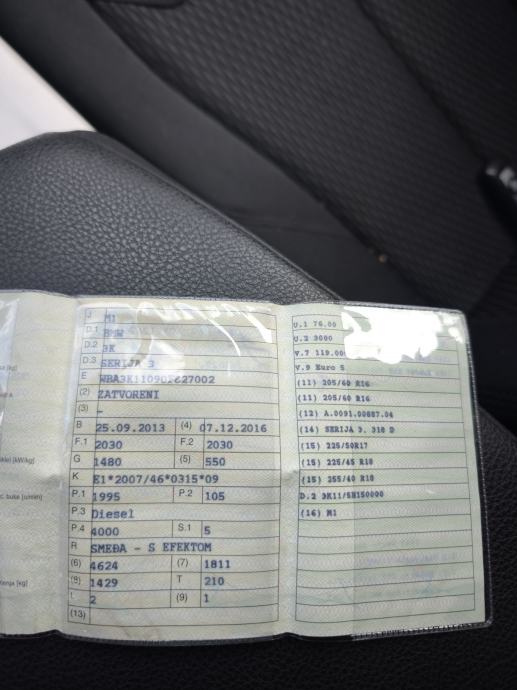 [kg]
[kW/kg]
J M1
D.1 BMW
D.2 3K
D.3 SERIJA 3
E
(2) ZATVORENI
(3) -
B 25.09.2013 (4) 07.12.2016
F.1 2030 F.2 2030
G 1480 (5) 550
K E1*2007/46*0315*09
P.1 1995 P.2 105
P.3 Diesel
P.4 4000 S.1 5
R SMEĐA - S EFEKTOM
(6) 4624 (7) 1811
(8) 1429 T 210
L 2 (9) 1
(13)
U.1 76.00
U.2 3000
V.7 119.00
V.9 Euro 5
(11) 205/60 R16
(11) 205/60 R16
(12) A.0091.00887.04
(14) SERIJA 3. 318 D
(15) 225/50R17
(15) 225/45 R18
(15) 255/40 R18
D.2 3K11/5H150000
(16) M1